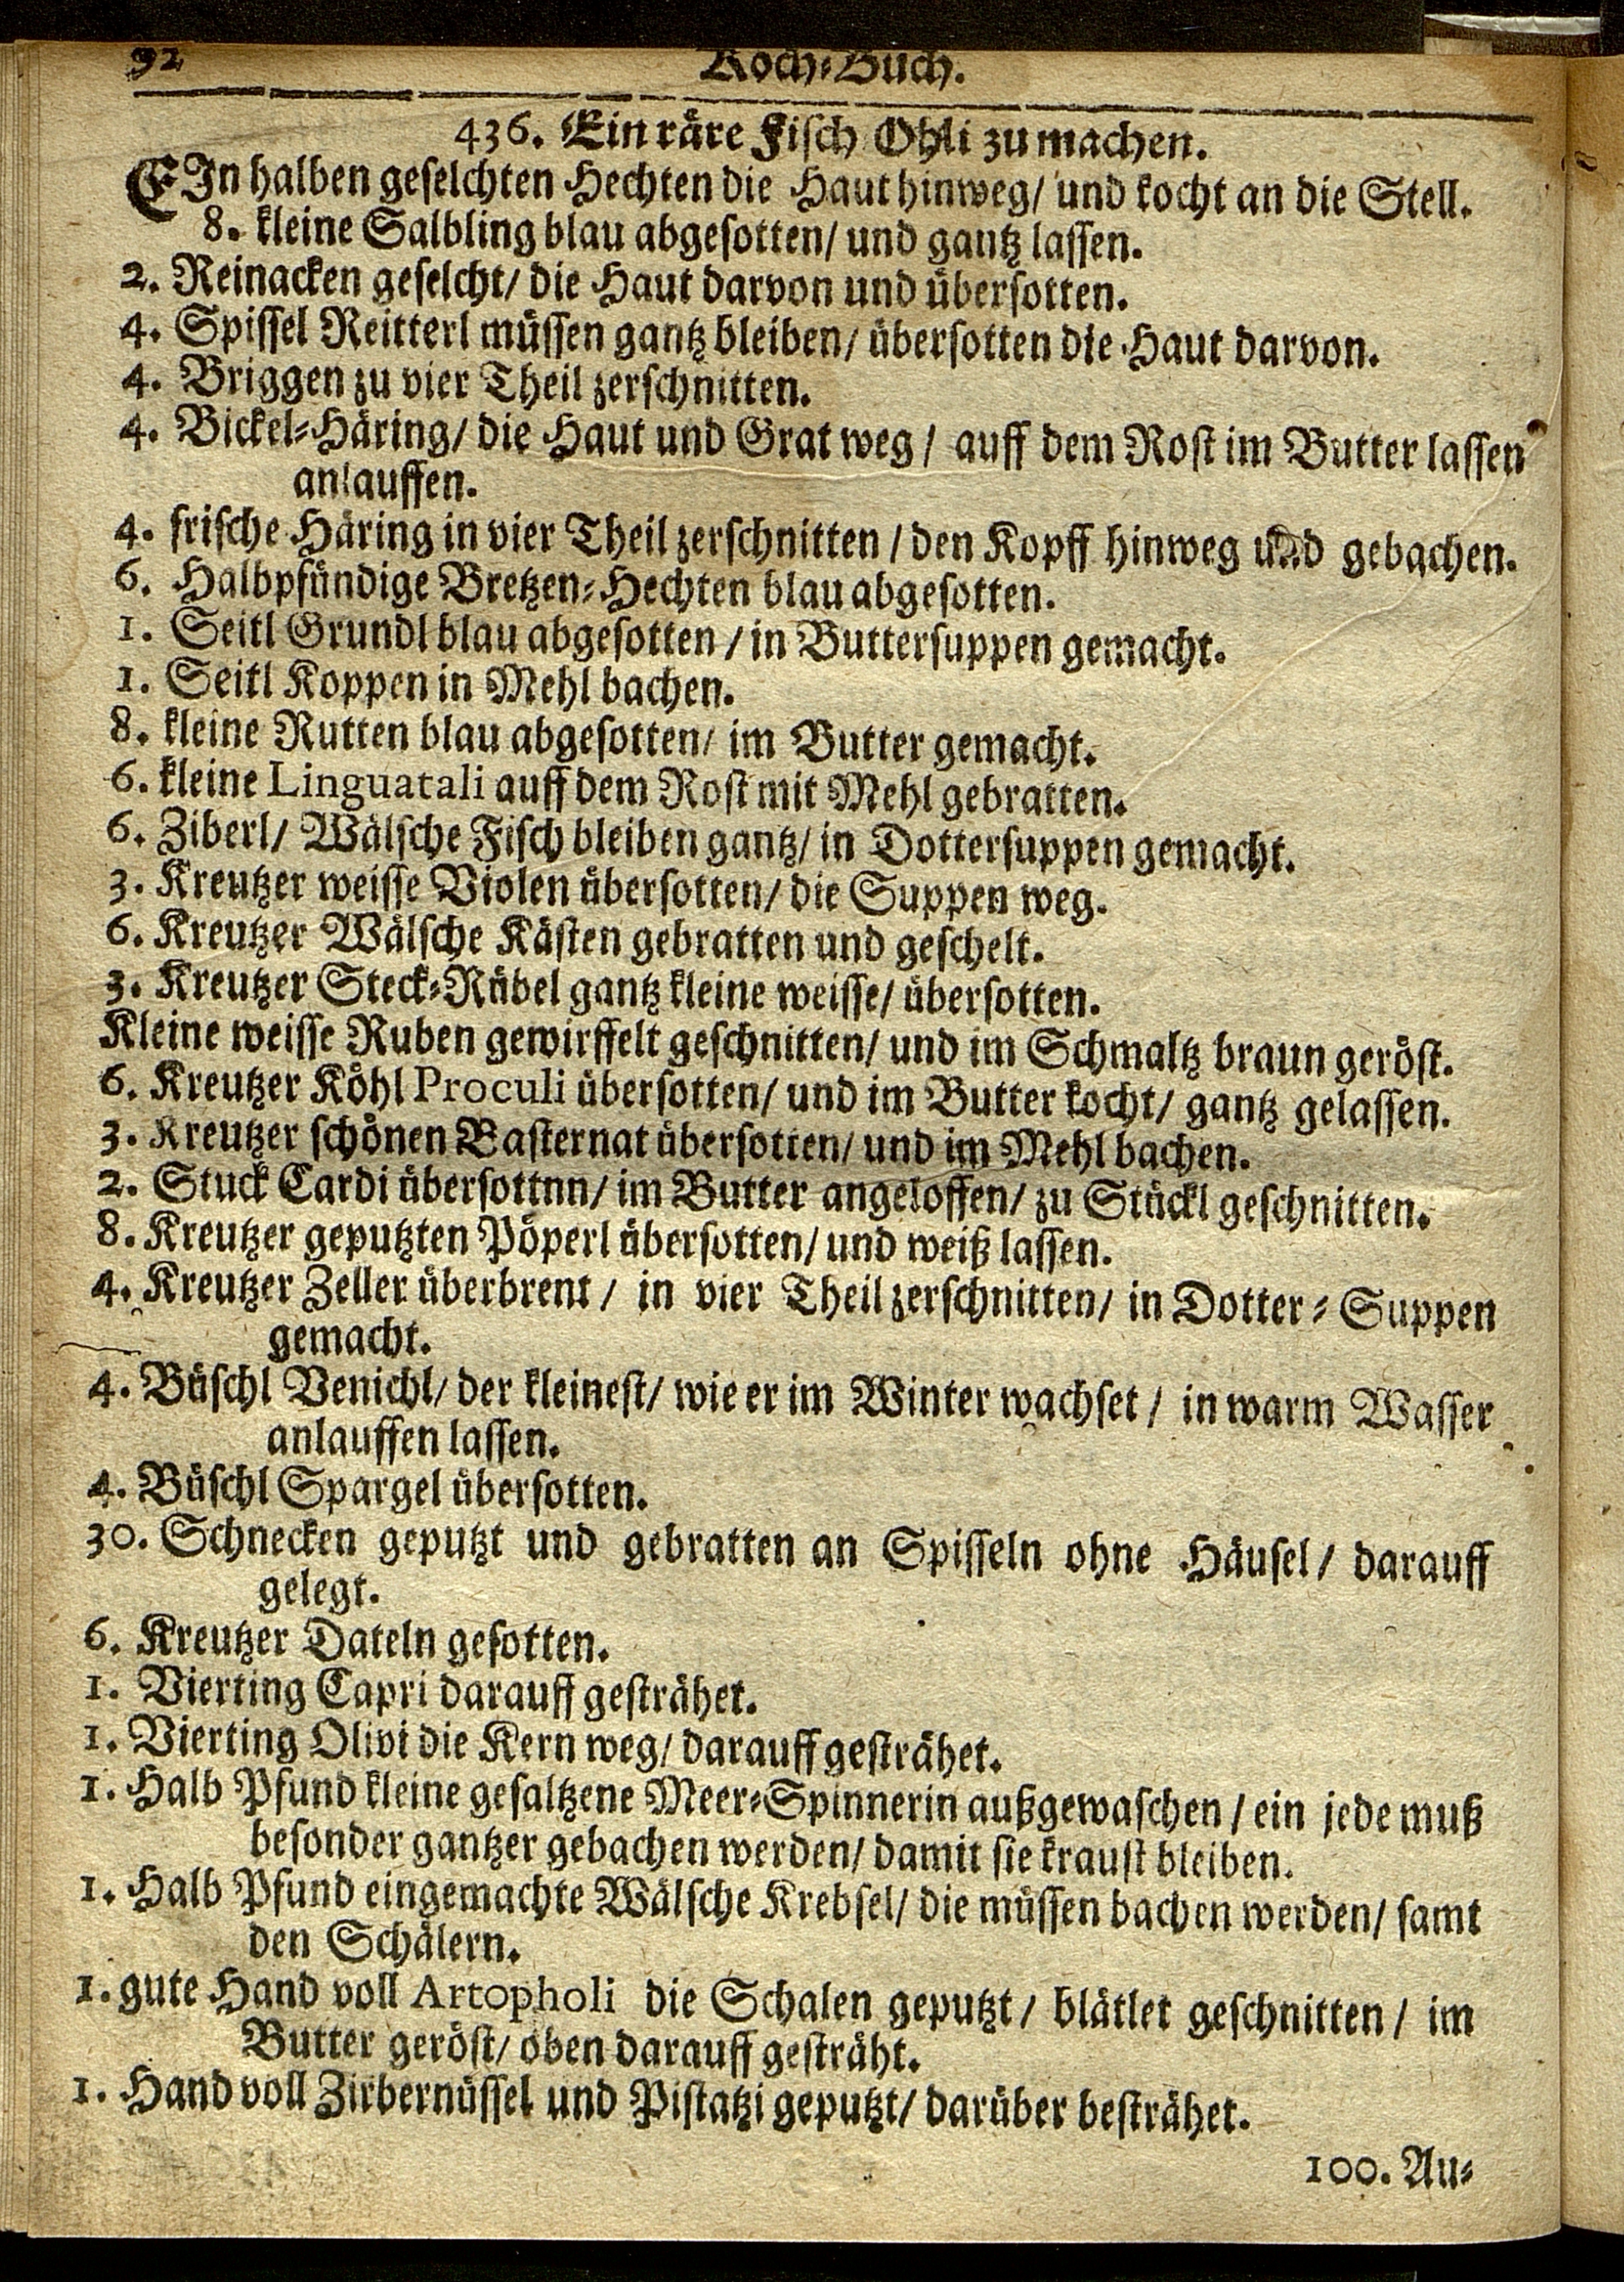 92 Koch-Buch.
436. Ein räre Fisch Ohli zu machen.
EIn halben geselchten Hechten die Haut hinweg/ und kocht an die Stell.
8. kleine Salbling blau abgesotten/ und gantz lassen.
2. Reinacken geselcht/ die Haut darvon und übersotten.
4. Spissel Reitterl müssen gantz bleiben/ übersotten die Haut darvon.
4. Briggen zu vier Theil zerschnitten.
4. Bickel-Häring/ die Haut und Grat weg/ auff dem Rost im Butter lassen
anlauffen.
4. frische Häring in vier Theil zerschnitten/ den Kopff hinweg und gebachen.
6. Halbpfündige Bretzen-Hechten blau abgesotten.
1. Seitl Grundl blau abgesotten/ in Buttersuppen gemacht.
1. Seitl Koppen in Mehl bachen.
8. kleine Rutten blau abgesotten/ im Butter gemacht.
6. kleine Linguatali auff dem Rost mit Mehl gebratten.
6. Ziberl/ Wälsche Fisch bleiben gantz/ in Dottersuppen gemacht.
3. Kreutzer weisse Violen übersotten/ die Suppen weg.
6. Kreutzer Wälsche Kästen gebratten und geschelt.
3. Kreutzer Steck-Rübel gantz kleine weisse/ übersotten.
Kleine weisse Ruben gewirffelt geschnitten/ und im Schmaltz braun geröst.
6. Kreutzer Köhl Proculi übersotten/ und im Butter kocht/ gantz gelassen.
3. Kreutzer schönen Basternat übersotten/ und im Mehl bachen.
2. Stuck Cardi übersottnn/ im Butter angeloffen/ zu Stückl geschnitten.
8. Kreutzer geputzten Pöperl übersotten/ und weiß lassen.
4. Kreutzer Zeller überbrent/ in vier Theil zerschnitten/ in Dotter-Suppen
gemacht.
4. Büschl Venichl/ der kleinest/ wie er im Winter wachset/ in warm Wasser
anlauffen lassen.
4. Büschl Spargel übersotten.
30. Schnecken geputzt und gebratten an Spisseln ohne Häusel/ darauff
gelegt.
6. Kreutzer Dateln gesotten.
1. Vierting Capri darauff gesträhet.
1. Vierting Olivi die Kern weg/ darauff gesträhet.
1. Halb Pfund kleine gesaltzene Meer-Spinnerin außgewaschen/ ein jede muß
besonder gantzer gebachen werden/ damit sie kraust bleiben.
1. Halb Pfund eingemachte Wälsche Krebsel/ die müssen bachen werden/ samt
den Schälern.
1. gute Hand voll Artopholi die Schalen geputzt/ blätlet geschnitten/ im
Butter geröst/ oben darauff gesträht.
1. Hand voll Zirbernüssel und Pistatzi geputzt/ darüber besträhet.
100. Au-